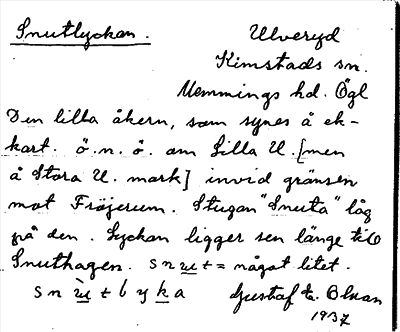 Snutlyckan.
Ulveryd
Kimstads sn.
Memmings hd. Ögl
Den lilla åkern, som synes å ek-
kart. ö.n.ö. om Lilla U. [men
å Stora U. mark] invid gränsen
mot Fröjerum. Stugan "Snuta" låg
på den. Lyckan ligger sen länge till
Snuthagen. snut = något litet.
snutbyka Gustaf
1937